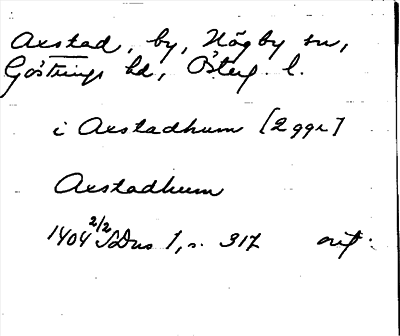 Axstad, by, Högby sn,
Göstrings hd, Österg. l.
i Axstadhum [2 ggr]
Axstadhum
1404 2/2 SDns 1, s. 317 or